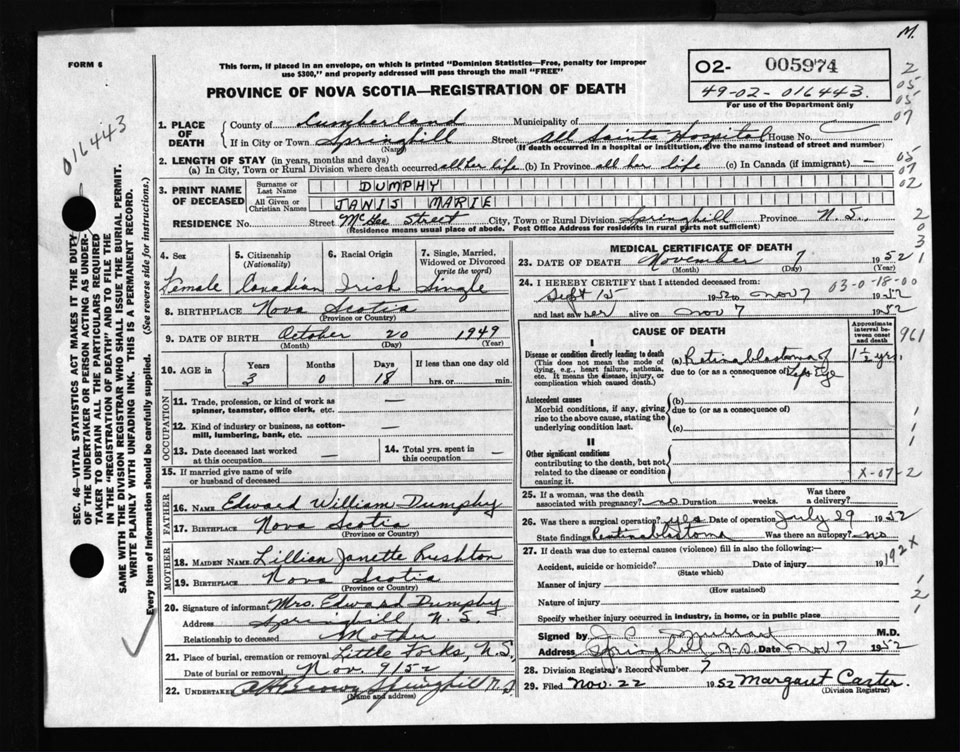 M.
FORM 6
This form, if placed in an envelope, on which is printed "Dominion Statistics—Free, penalty for improper
use $300," and properly addressed will pass through the mail "FREE"
PROVINCE OF NOVA SCOTIA—REGISTRATION OF DEATH
02- 005974
49-02-016443.
For use of the Department only
2
05
05
07
016443
1. PLACE OF DEATH
County of Cumberland Municipality of
If in City or Town Springhill Street All Saints Hospital House No.
(Name) (If death occurred in hospital or institution, give the name instead of street and number)
2. LENGTH OF STAY (in years, months and days)
(a) In City, Town or Rural Division where death occurred all her life (b) In Province all her life (c) In Canada (if immigrant) —
05
07
02
3. PRINT NAME OF DECEASED
Surname or Last Name DUMPHY
All Given or Christian Names JANIS MARIE
RESIDENCE No. Street McGee Street City, Town or Rural Division Springhill Province N.S.,
(Residence means usual place of abode. Post Office Address for residents in rural parts not sufficient)
2
0
3
1
SEC. 46—VITAL STATISTICS ACT MAKES IT THE DUTY
OF THE UNDERTAKER OR PERSON ACTING AS UNDER-
TAKER TO OBTAIN ALL THE PARTICULARS REQUIRED
IN THE "REGISTRATION OF DEATH" AND TO FILE THE
SAME WITH THE DIVISION REGISTRAR WHO SHALL ISSUE THE BURIAL PERMIT.
WRITE PLAINLY WITH UNFADING INK. THIS IS A PERMANENT RECORD.
Every item of information should be carefully supplied. (See reverse side for instructions.)
4. Sex
5. Citizenship (Nationality)
6. Racial Origin
7. Single, Married, Widowed or Divorced (write the word)
Female Canadian Irish Single
8. BIRTHPLACE Nova Scotia
(Province or Country)
9. DATE OF BIRTH October 20 1949
(Month) (Day) (Year)
10. AGE in Years Months Days If less than one day old
3 0 18 hrs. or min.
OCCUPATION
11. Trade, profession, or kind of work as
spinner, teamster, office clerk, etc. —
12. Kind of industry or business, as cotton-
mill, lumbering, bank, etc.
13. Date deceased last worked
at this occupation —
14. Total yrs. spent in
this occupation —
15. If married give name of wife
or husband of deceased
FATHER
16. NAME Edward William Dumphy
17. BIRTHPLACE Nova Scotia
(Province or Country)
MOTHER
18. MAIDEN NAME Lillian Janette Rushton
19. BIRTHPLACE Nova Scotia
(Province or Country)
20. Signature of informant Mrs. Edward Dumphy
Address Springhill N.S.
Relationship to deceased Mother
21. Place of burial, cremation or removal Little Forks, N.S.,
Date of burial or removal Nov. 9/52
22. Undertaker A. H. Brown Springhill N.S.
(Name and address)
MEDICAL CERTIFICATE OF DEATH
23. DATE OF DEATH November 7 1952
(Month) (Day) (Year)
24. I HEREBY CERTIFY that I attended deceased from: 03-0-18-00
Sept 15 1952 to Nov 7 1952
and last saw her alive on Nov 7 1952
CAUSE OF DEATH
Approximate interval between onset and death
961
I
Disease or condition directly leading to death
(This does not mean the mode of
dying, e.g., heart failure, asthenia,
etc. It means the disease, injury, or
complication which caused death.)
(a) Retinablastoma of
due to (or as a consequence of) Left Eye
1½ yrs.
Antecedent causes
Morbid conditions, if any, giving
rise to the above cause, stating the
underlying condition last.
(b)
due to (or as a consequence of)
(c)
1
1
1
II
Other significant conditions
contributing to the death, but not
related to the disease or condition
causing it.
X-07-2
25. If a woman, was the death
associated with pregnancy? no Duration weeks. Was there
a delivery?
26. Was there a surgical operation? yes Date of operation July 29 1952
State findings Retinablastoma Was there an autopsy? no
27. If death was due to external causes (violence) fill in also the following:—
Accident, suicide or homicide? Date of injury 19
(State which)
192X
Manner of injury
(How sustained)
Nature of injury
1
2
1
Specify whether injury occurred in industry, in home, or in public place
Signed by J. C. M.D.
Address Springhill N.S. Date Nov 7 1952
28. Division Registrar's Record Number 7
29. Filed Nov. 22 1952 Margaret Carter.
(Division Registrar)